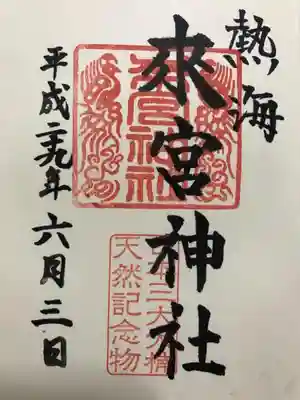 熱海
來宮神社
平成二十九年六月三日
來宮神社
日本三大大楠
天然記念物